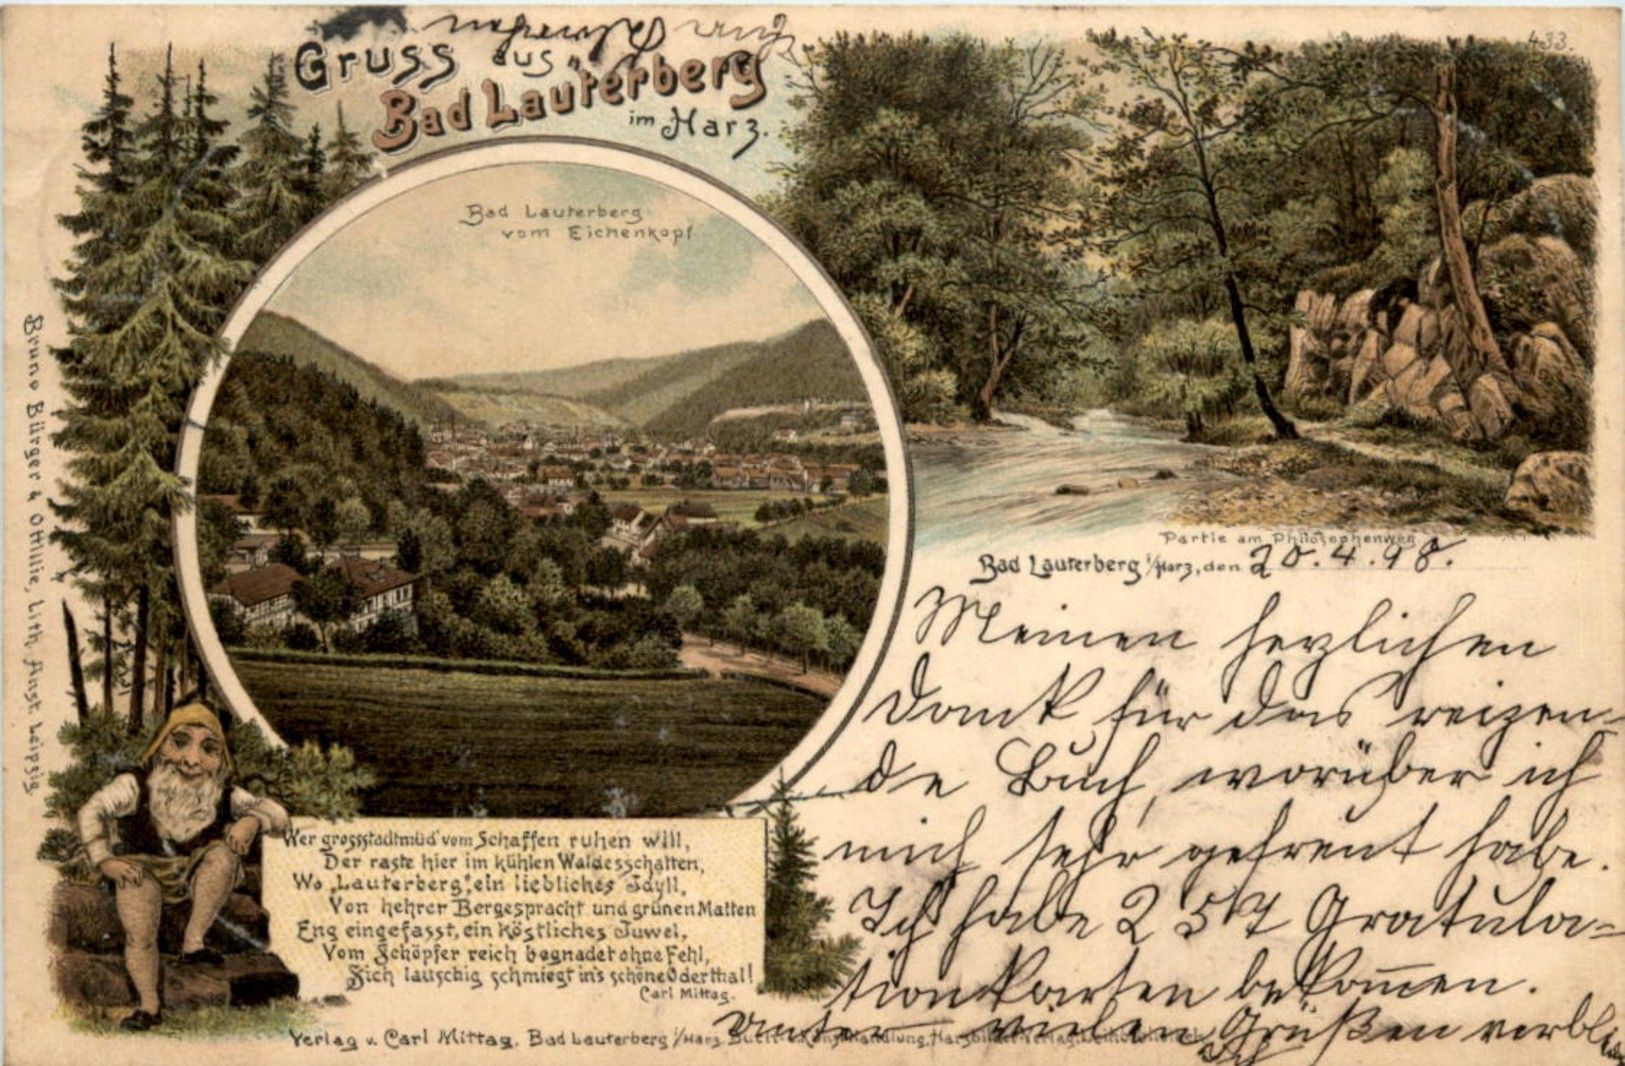 433.
Gruss aus
Bad Lauterberg
im Harz.
Bad Lauterberg
vom Eichenkopf
Partie am Philosophenweg.
Bad Lauterberg i/Harz, den 20.4.98.
Meinen herzlichen
Dank für das reizen-
de Buch, worüber ich
mich sehr gefreut habe.
Ich habe 257 Gratula=
tionskarten bekom̅en.
Unter vielen Grüßen verbl
Wer grossstadtmüd' vom Schaffen ruhen will,
Der raste hier im kühlen Waldesschatten,
Wo „Lauterberg", ein liebliches Idyll,
Von hehrer Bergespracht und grünen Matten
Eng eingefasst, ein köstliches Juwel,
Vom Schöpfer reich begnadet ohne Fehl,
Sich lauschig schmiegt in's schöne Oderthal!
Carl Mittag.
Verlag v. Carl Mittag, Bad Lauterberg i/Harz
Bruno Bürger & Ottilie, Lith. Anst. Leipzig.